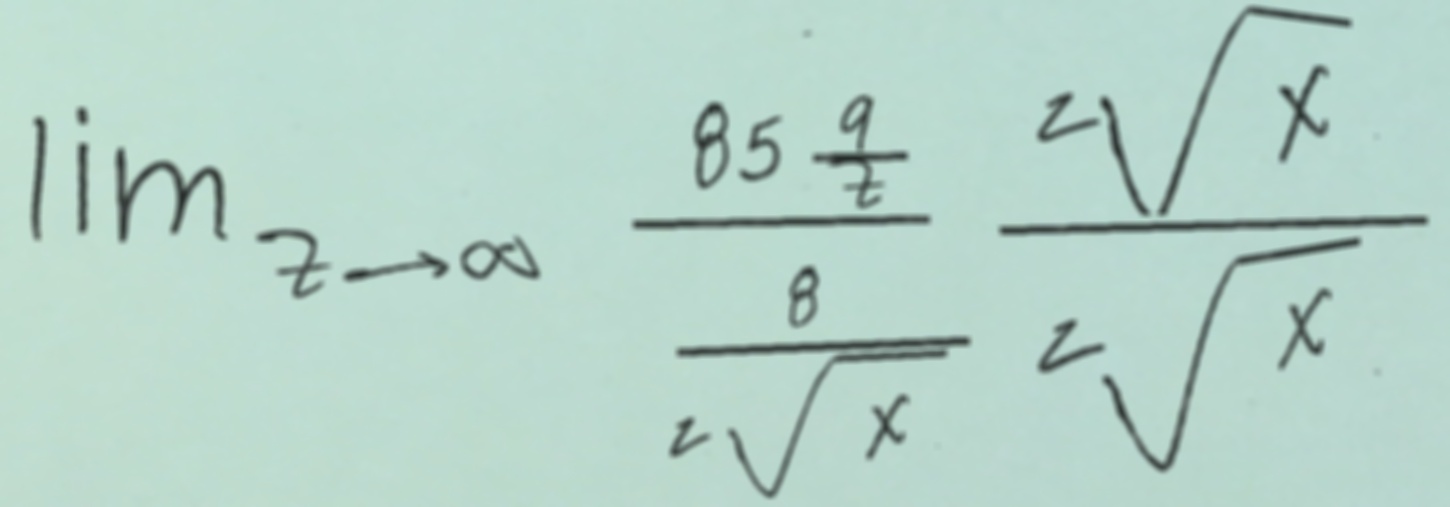 \lim_{z \to \infty} \frac{85 \frac{9}{z}}{\frac{8}{2\sqrt{x}}} \frac{2\sqrt{x}}{2\sqrt{x}}